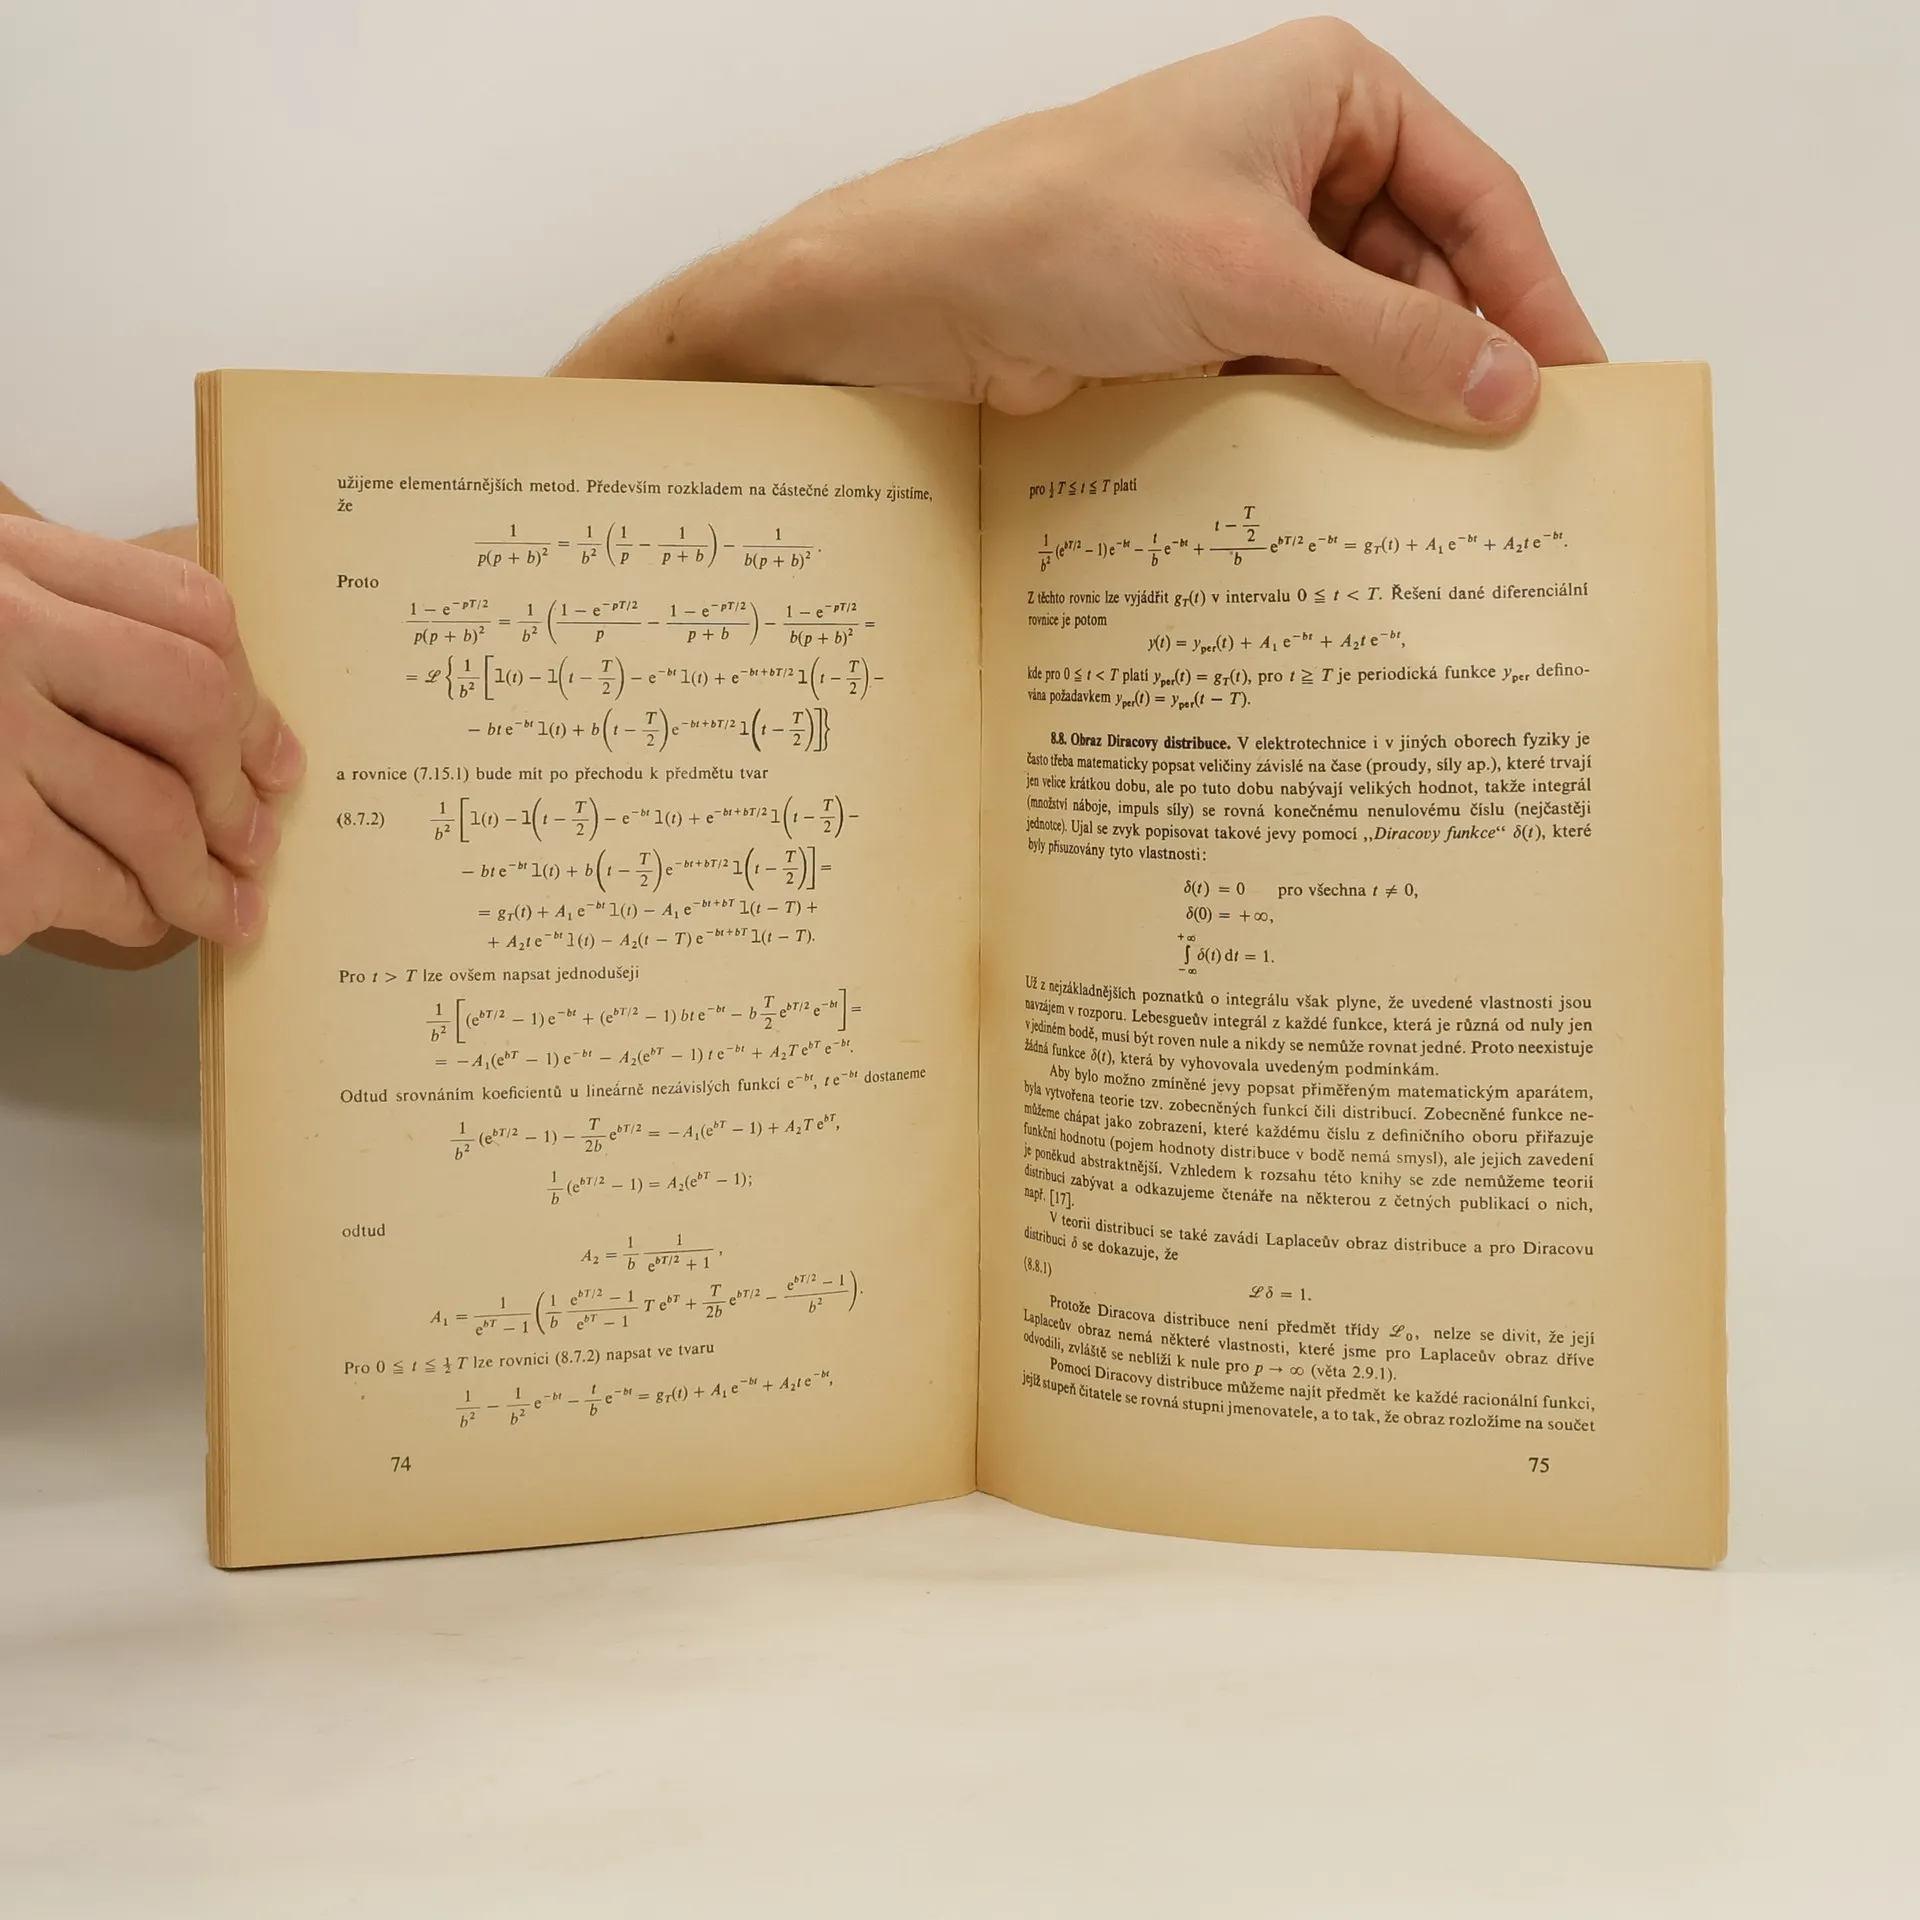 užijeme elementárnějších metod. Především rozkladem na částečné zlomky zjistíme,
že
1/(p(p + b)²) = 1/b² (1/p − 1/(p + b)) − 1/(b(p + b)²).
Proto
(1 − e^(−pT/2))/(p(p + b)²) = 1/b² ((1 − e^(−pT/2))/p − (1 − e^(−pT/2))/(p + b)) − (1 − e^(−pT/2))/(b(p + b)²) =
= ℒ{1/b² [1(t) − 1(t − T/2) − e^(−bt) 1(t) + e^(−bt+bT/2) 1(t − T/2) −
− bt e^(−bt) 1(t) + b(t − T/2) e^(−bt+bT/2) 1(t − T/2)]}
a rovnice (7.15.1) bude mít po přechodu k předmětu tvar
(8.7.2) 1/b² [1(t) − 1(t − T/2) − e^(−bt) 1(t) + e^(−bt+bT/2) 1(t − T/2) −
− bt e^(−bt) 1(t) + b(t − T/2) e^(−bt+bT/2) 1(t − T/2)] =
= g_T(t) + A₁ e^(−bt) 1(t) − A₁ e^(−bt+bT) 1(t − T) +
+ A₂t e^(−bt) 1(t) − A₂(t − T) e^(−bt+bT) 1(t − T).
Pro t > T lze ovšem napsat jednodušeji
1/b² [(e^(bT/2) − 1) e^(−bt) + (e^(bT/2) − 1) bt e^(−bt) − b T/2 e^(bT/2) e^(−bt)] =
= −A₁(e^(bT) − 1) e^(−bt) − A₂(e^(bT) − 1) t e^(−bt) + A₂T e^(bT) e^(−bt).
Odtud srovnáním koeficientů u lineárně nezávislých funkcí e^(−bt), t e^(−bt) dostaneme
1/b² (e^(bT/2) − 1) − T/2b e^(bT/2) = −A₁(e^(bT) − 1) + A₂T e^(bT),
1/b (e^(bT/2) − 1) = A₂(e^(bT) − 1);
odtud
A₂ = 1/b 1/(e^(bT/2) + 1),
A₁ = 1/(e^(bT) − 1) (1/b (e^(bT/2) − 1)/(e^(bT) − 1) T e^(bT) + T/2b e^(bT/2) − (e^(bT/2) − 1)/b²).
Pro 0 ≦ t ≦ ½ T lze rovnici (8.7.2) napsat ve tvaru
1/b² − 1/b² e^(−bt) − t/b e^(−bt) = g_T(t) + A₁ e^(−bt) + A₂t e^(−bt),
74
pro ½ T ≦ t ≦ T platí
1/b² (e^(bT/2) − 1) e^(−bt) − t/b e^(−bt) + (t − T/2)/b e^(bT/2) e^(−bt) = g_T(t) + A₁ e^(−bt) + A₂t e^(−bt).
Z těchto rovnic lze vyjádřit g_T(t) v intervalu 0 ≦ t < T. Řešení dané diferenciální
rovnice je potom
y(t) = y_per(t) + A₁ e^(−bt) + A₂t e^(−bt),
kde pro 0 ≦ t < T platí y_per(t) = g_T(t), pro t ≧ T je periodická funkce y_per defino-
vána požadavkem y_per(t) = y_per(t − T).
8.8. Obraz Diracovy distribuce. V elektrotechnice i v jiných oborech fyziky je
často třeba matematicky popsat veličiny závislé na čase (proudy, síly ap.), které trvají
jen velice krátkou dobu, ale po tuto dobu nabývají velikých hodnot, takže integrál
(množství náboje, impuls síly) se rovná konečnému nenulovému číslu (nejčastěji
jednotce). Ujal se zvyk popisovat takové jevy pomocí „Diracovy funkce“ δ(t), které
byly přisuzovány tyto vlastnosti:
δ(t) = 0 pro všechna t ≠ 0,
δ(0) = +∞,
∫_(−∞)^(+∞) δ(t) dt = 1.
Už z nejzákladnějších poznatků o integrálu však plyne, že uvedené vlastnosti jsou
navzájem v rozporu. Lebesgueův integrál z každé funkce, která je různá od nuly jen
v jediném bodě, musí být roven nule a nikdy se nemůže rovnat jedné. Proto neexistuje
žádná funkce δ(t), která by vyhovovala uvedeným podmínkám.
Aby bylo možno zmíněné jevy popsat přiměřeným matematickým aparátem,
byla vytvořena teorie tzv. zobecněných funkcí čili distribucí. Zobecněné funkce ne-
můžeme chápat jako zobrazení, které každému číslu z definičního oboru přiřazuje
funkční hodnotu (pojem hodnoty distribuce v bodě nemá smysl), ale jejich zavedení
je poněkud abstraktnější. Vzhledem k rozsahu této knihy se zde nemůžeme teorií
distribucí zabývat a odkazujeme čtenáře na některou z četných publikací o nich,
např. [17].
V teorii distribucí se také zavádí Laplaceův obraz distribuce a pro Diracovu
distribuci δ se dokazuje, že
(8.8.1)
ℒδ = 1.
Protože Diracova distribuce není předmět třídy ℒ₀, nelze se divit, že její
Laplaceův obraz nemá některé vlastnosti, které jsme pro Laplaceův obraz dříve
odvodili, zvláště se neblíží k nule pro p → ∞ (věta 2.9.1).
Pomocí Diracovy distribuce můžeme najít předmět ke každé racionální funkci,
jejíž stupeň čitatele se rovná stupni jmenovatele, a to tak, že obraz rozložíme na součet
75